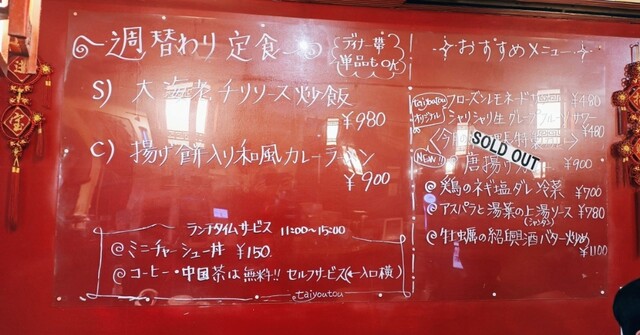 週替わり定食
ディナー
単品もOK
S) 大海老チリソース炒飯
¥980
C) 揚げ餅入り和風カレーラーメン
¥900
ランチタイムサービス 11:00~15:00
@ミニチャーシュー丼 ¥150
@コーヒー・中国茶は無料!! セルフサービス(←入口横)
taiyoutou
おすすめメニュー
taiyoutou
オリジナル
フローズンレモネードサワー ¥480
シャリシャリ生グレープフルーツサワー
¥480
SOLD OUT
NEW!!
唐揚げ ¥900
@鶏のネギ塩ダレ冷菜 ¥700
@アスパラと湯葉の上湯ソース ¥780
(シャンタン)
@牡蠣の紹興酒バター炒め
¥1100